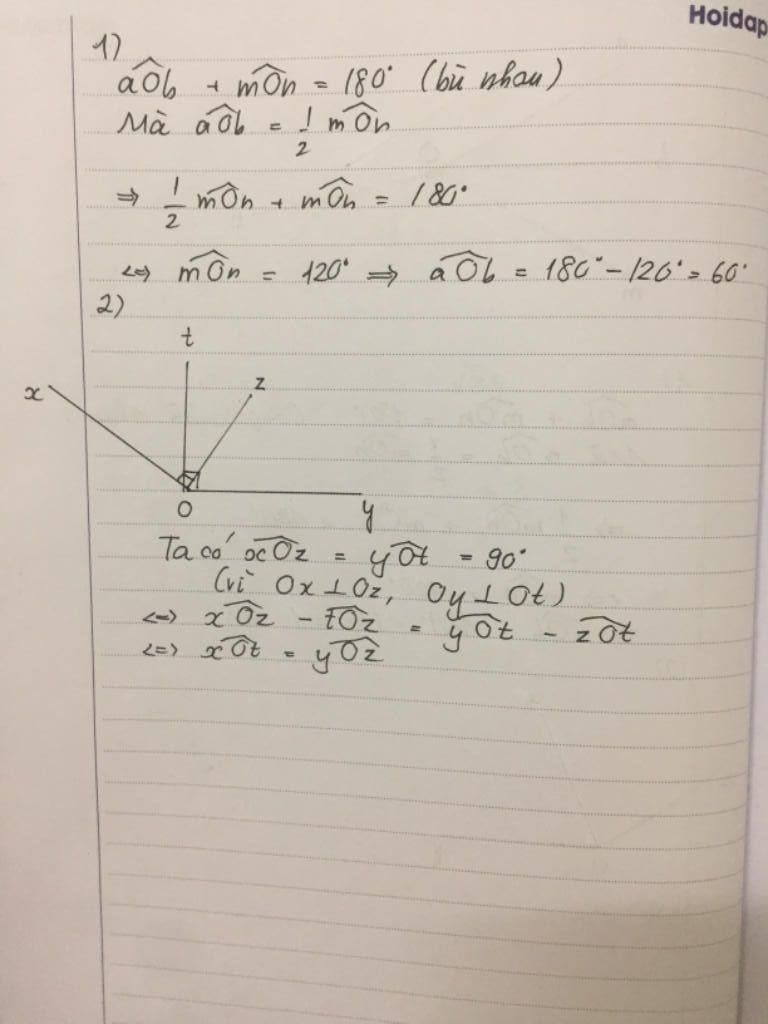 Hoidap
1)
aOb + mOn = 180° (bù nhau)
Mà aOb = 1/2 mOn
⇒ 1/2 mOn + mOn = 180°
⇔ mOn = 120° ⇒ aOb = 180° - 120° = 60°
2)
t
x
z
O
y
Ta có xOz = yOt = 90°
(vì Ox ⊥ Oz, Oy ⊥ Ot)
⇔ xOz - tOz = yOt - zOt
⇔ xOt = yOz